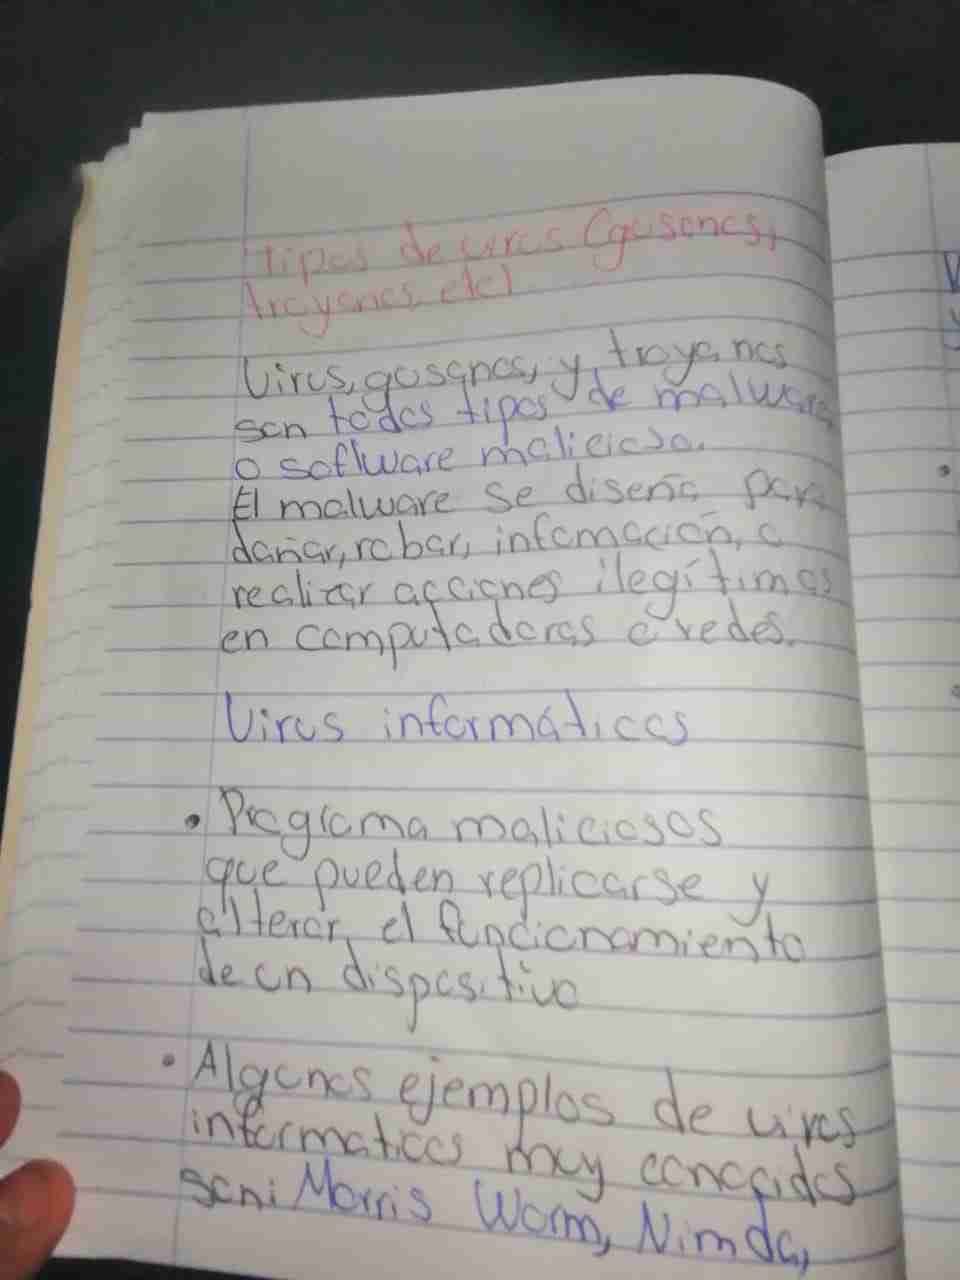 tipos de virus (gusanos,
troyanos, etc)
Virus, gusanos, y troyanos
son todos tipos de malware
o software malicioso.
El malware se diseña para
dañar, robar, infomación, o
realizar acciones ilegítimas
en computadoras o redes.
Virus informáticos
• Programa maliciosos
que pueden replicarse y
alterar el funcionamiento
de un dispositivo
• Algunos ejemplos de virus
informaticos muy conocidos
son: Morris Worm, Nimda,